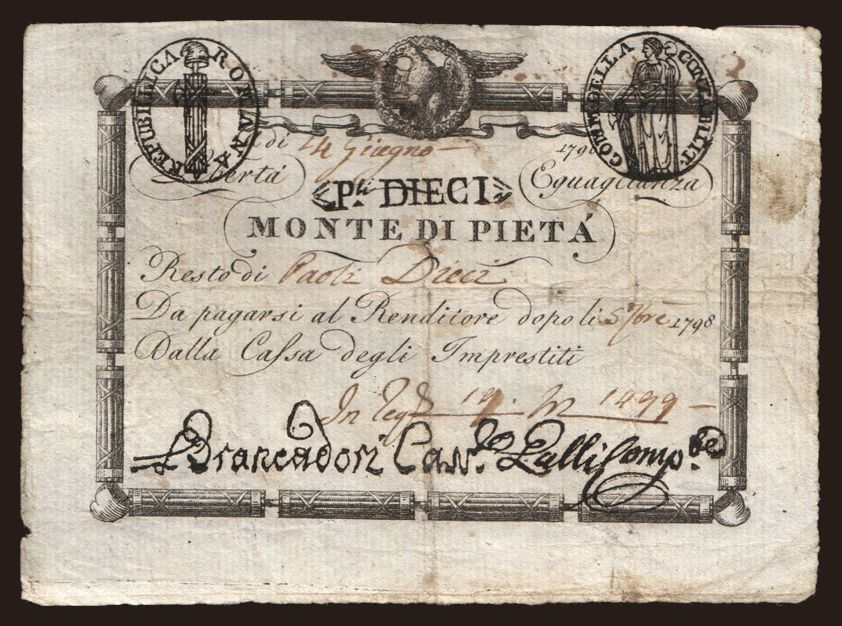 REPUBBLICA ROMANA
COMM. DELLA CONTABILIT.
di 14 Giugno 179
Libertà Eguaglianza
P.li DIECI
MONTE DI PIETÁ
Resto di Paoli Dieci
Da pagarsi al Renditore dopo li 5 7bre 1798
Dalla Cassa degli Imprestiti
In Reg.º 19. N 1499
Brancadori Can. Lalli Comp.be